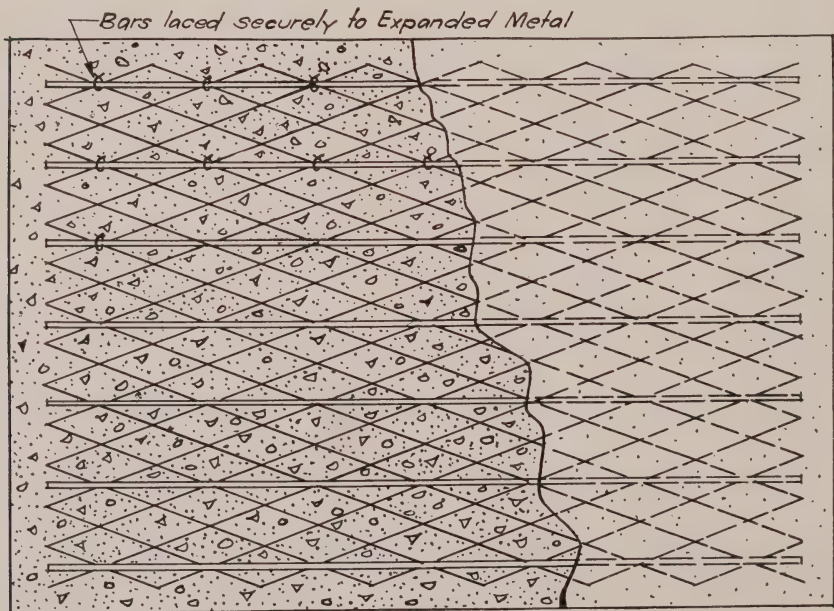 Bars laced securely to Expanded Metal